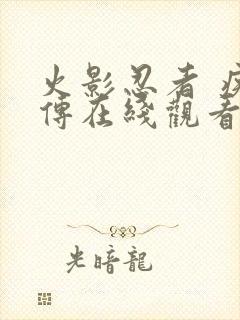 火影忍者 疾
傳在綫觀看
光暗龍